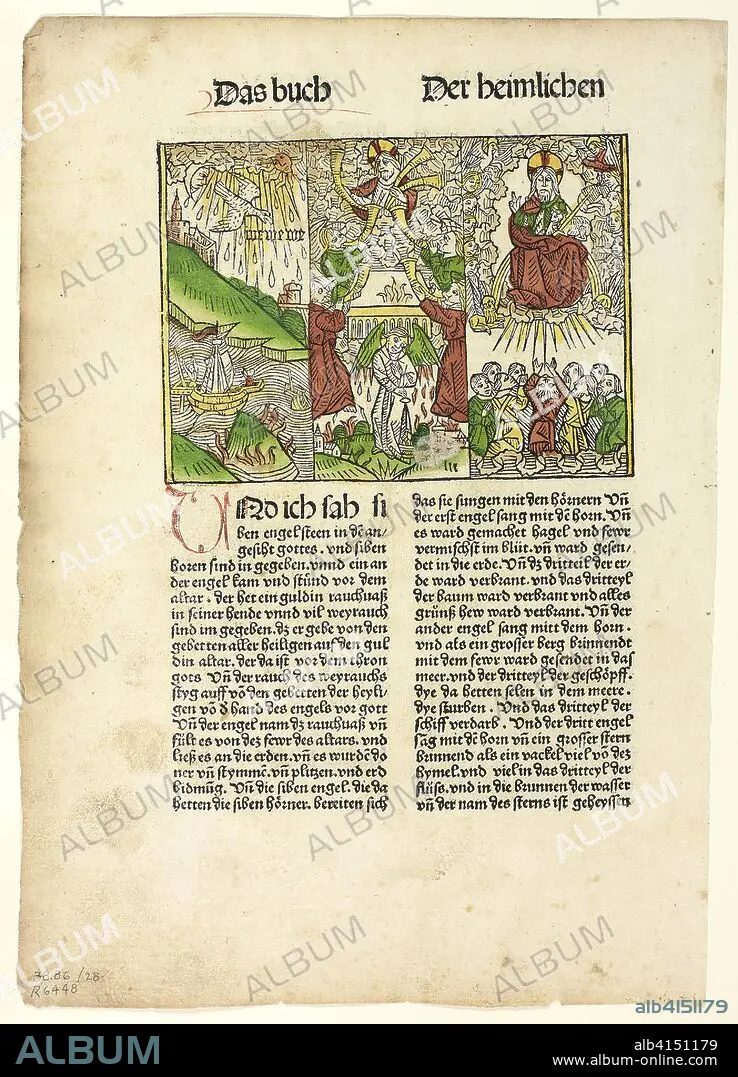 Das buch
Der heimlichen
we we we
UNd ich sah si
ben engel steen in dē an⸗
gesiht gottes. vnd siben
horen sind in gegeben. vnnd ein an
der engel kam vnd stůnd vor dem
altar. der het ein guldin rauchuaß
in seiner hende vnnd vil weyrauch
sind im gegeben. dz er gebe von den
gebetten aller heiligen auf den gul
din altar. der da ist vor dem thron
gots Vn̄ der rauch des weyrauchs
styg auff vō den gebetten der heyli⸗
gen vō d hand des engels vor gott
Vn̄ der engel nam dz rauchuaß vn̄
fült es von dez fewr des altars. vnd
ließ es an die erden. vn̄ es wurdē do
ner vn̄ stymmē. vn̄ plitzen. vnd erd
bidmūg. Vn̄ die siben engel. die da
hetten die siben hörner. bereiten sich
das sie sungen mit den hörnern Vn̄
der erst engel sang mit dē horn. Vn̄
es ward gemachet hagel vnd fewr
vermischst im blůt. vn̄ ward gesen⸗
det in die erde. Vn̄ dz dritteil der er⸗
de ward verbrant. vnd das dritteyl
der baum ward verbrant vnd alles
grůnß hew ward verbrant. Vn̄ der
ander engel sang mitt dem horn.
vnd als ein grosser berg brinnendt
mit dem fewr ward gesendet in das
meer. vnd der dritteyl der geschöpff.
dye da hetten selen in dem meere.
dye sturben. Vnd das dritteyl der
schiff verdarb. Vnd der dritt engel
sāg mit dē horn vn̄ ein grosser stern
brinnend als ein vackel viel vō dez
hymel. vnd viel in das dritteyl der
flüss. vnd in die brunnen der wasser
vn̄ der nam des sterns ist geheyssen
78.86 /28
R6448
alb4151179
ALBUM
alb4151179
www.album-online.com